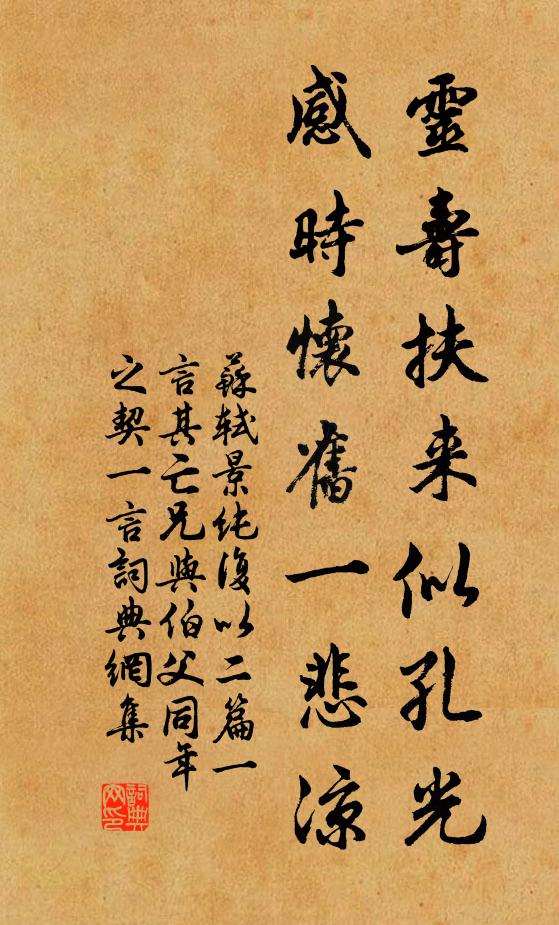 靈壽扶来似孔光
感時懷舊一悲涼
蘇軾景純復以二篇一
言其亡兄與伯父同年
之契一言詞典網集
詞典
网印